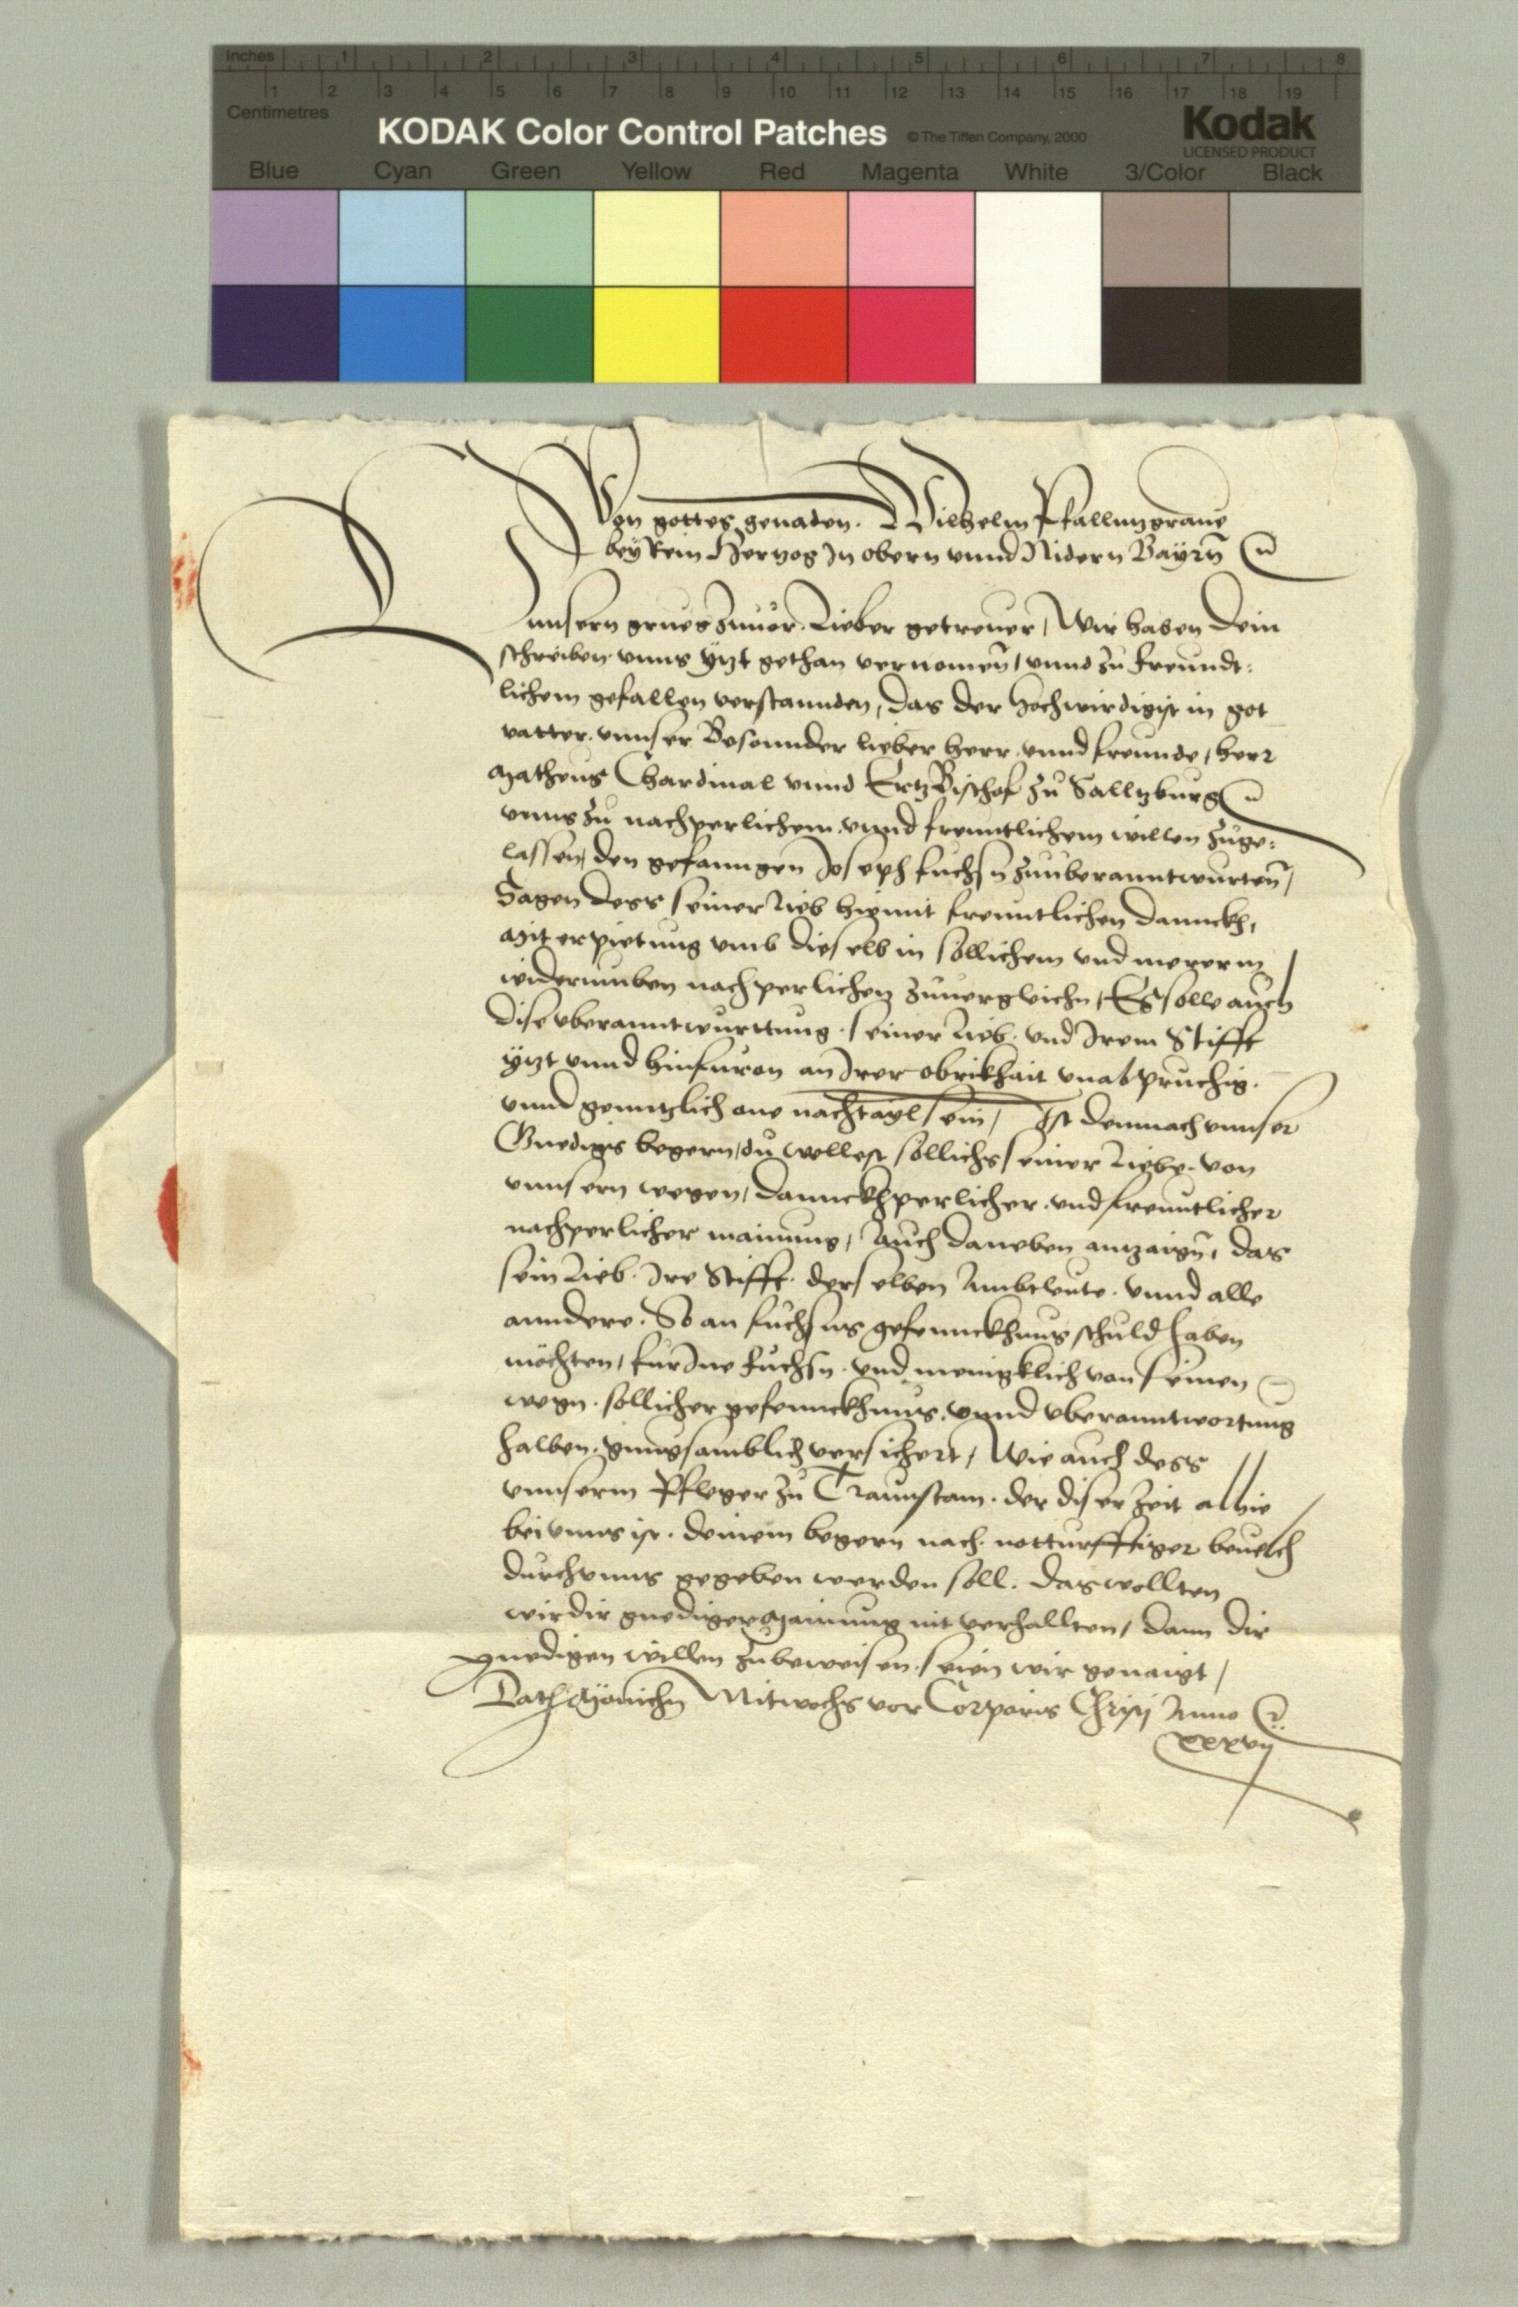 Inches 1 2 3 4 5 6 7 8
1 2 3 4 5 6 7 8 9 10 11 12 13 14 15 16 17 18 19
Centimetres
KODAK Color Control Patches © The Tiffen Company, 2000 Kodak
LICENSED PRODUCT
Blue Cyan Green Yellow Red Magenta White 3/Color Black
Von gottes genaden. Wilhelm Pfallnzgraue
bey Rein Hertzog In obern vnnd Nidern Bayrn
unsern grues zuuor. Lieber getreuer, Wir haben dein
schreiben vnns ytzt gethan vernomen, vnnd zu freundt-
lichem gefallen verstannden, das der hochwirdigist in got
vatter. vnnser Besonnder lieber herr. vnnd freunde, herr
Matheus Chardinal vnnd ErtzBischof zu Salltzburg
vnns zu nachperlichem. vnnd freuntlichem willen zuge-
lassen, den gefanngen Joseph fuchsn zuuberanntwurten,
Sagen dess seiner Lieb hiemit freuntlichen dannckh,
Mit erpietung vmb dieselb in sollichem vnd mererm
widerumben nachperlichen zuuergleichn, Es solle auch
dise vberanntwurttung. seiner Lieb. vnd Irem Stifft
ytzt vnnd hinfuron an Irer obrikhait vnabpruchig.
vnnd genntzlich one nachtayl sein, Ist demnach vnnser
Gnedigs begern, du wellest sollichs seiner Liebe. von
vnnsern wegen, dannckhperlicher. vnd freuntlicher
nachperlicher mainung, Auch daneben antzaign, das
sein Lieb. Ire Stifft. derselben Ambtleute. vnnd alle
anndere. So an fuchsns gefennckhnus schuld haben
möchten, fur Ine fuchsn. vnd menigklich von seinen
wegn. sollicher gefennckhnus. vnnd vberanntwortung
halben. gnugsamblich versichert, Wie auch dess
vnnserm Pfleger zu Traunstain. der diser Zeit alhie
bei vnns ist. deinem begern nach. notturfftiger beuelch
durch vnns gegeben werden soll. das wollten
wir dir gnediger Mainung nit verhallten, dann dir
gnedigen willen zubeweisen. seien wir genaigt,
Dat. München Mitwochs vor Corporis Christi Anno
xxxvij